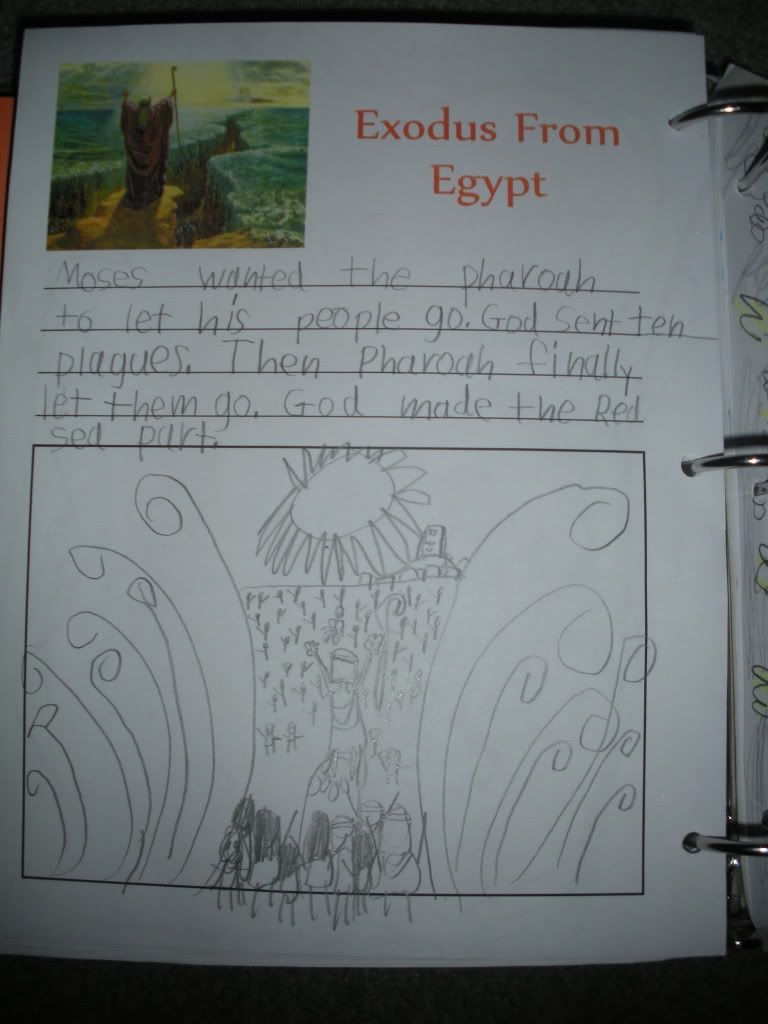 Exodus From
Egypt
Moses wanted the pharoah
to let his people go. God sent ten
plagues. Then Pharoah finally
let them go. God made the Red
sea part.